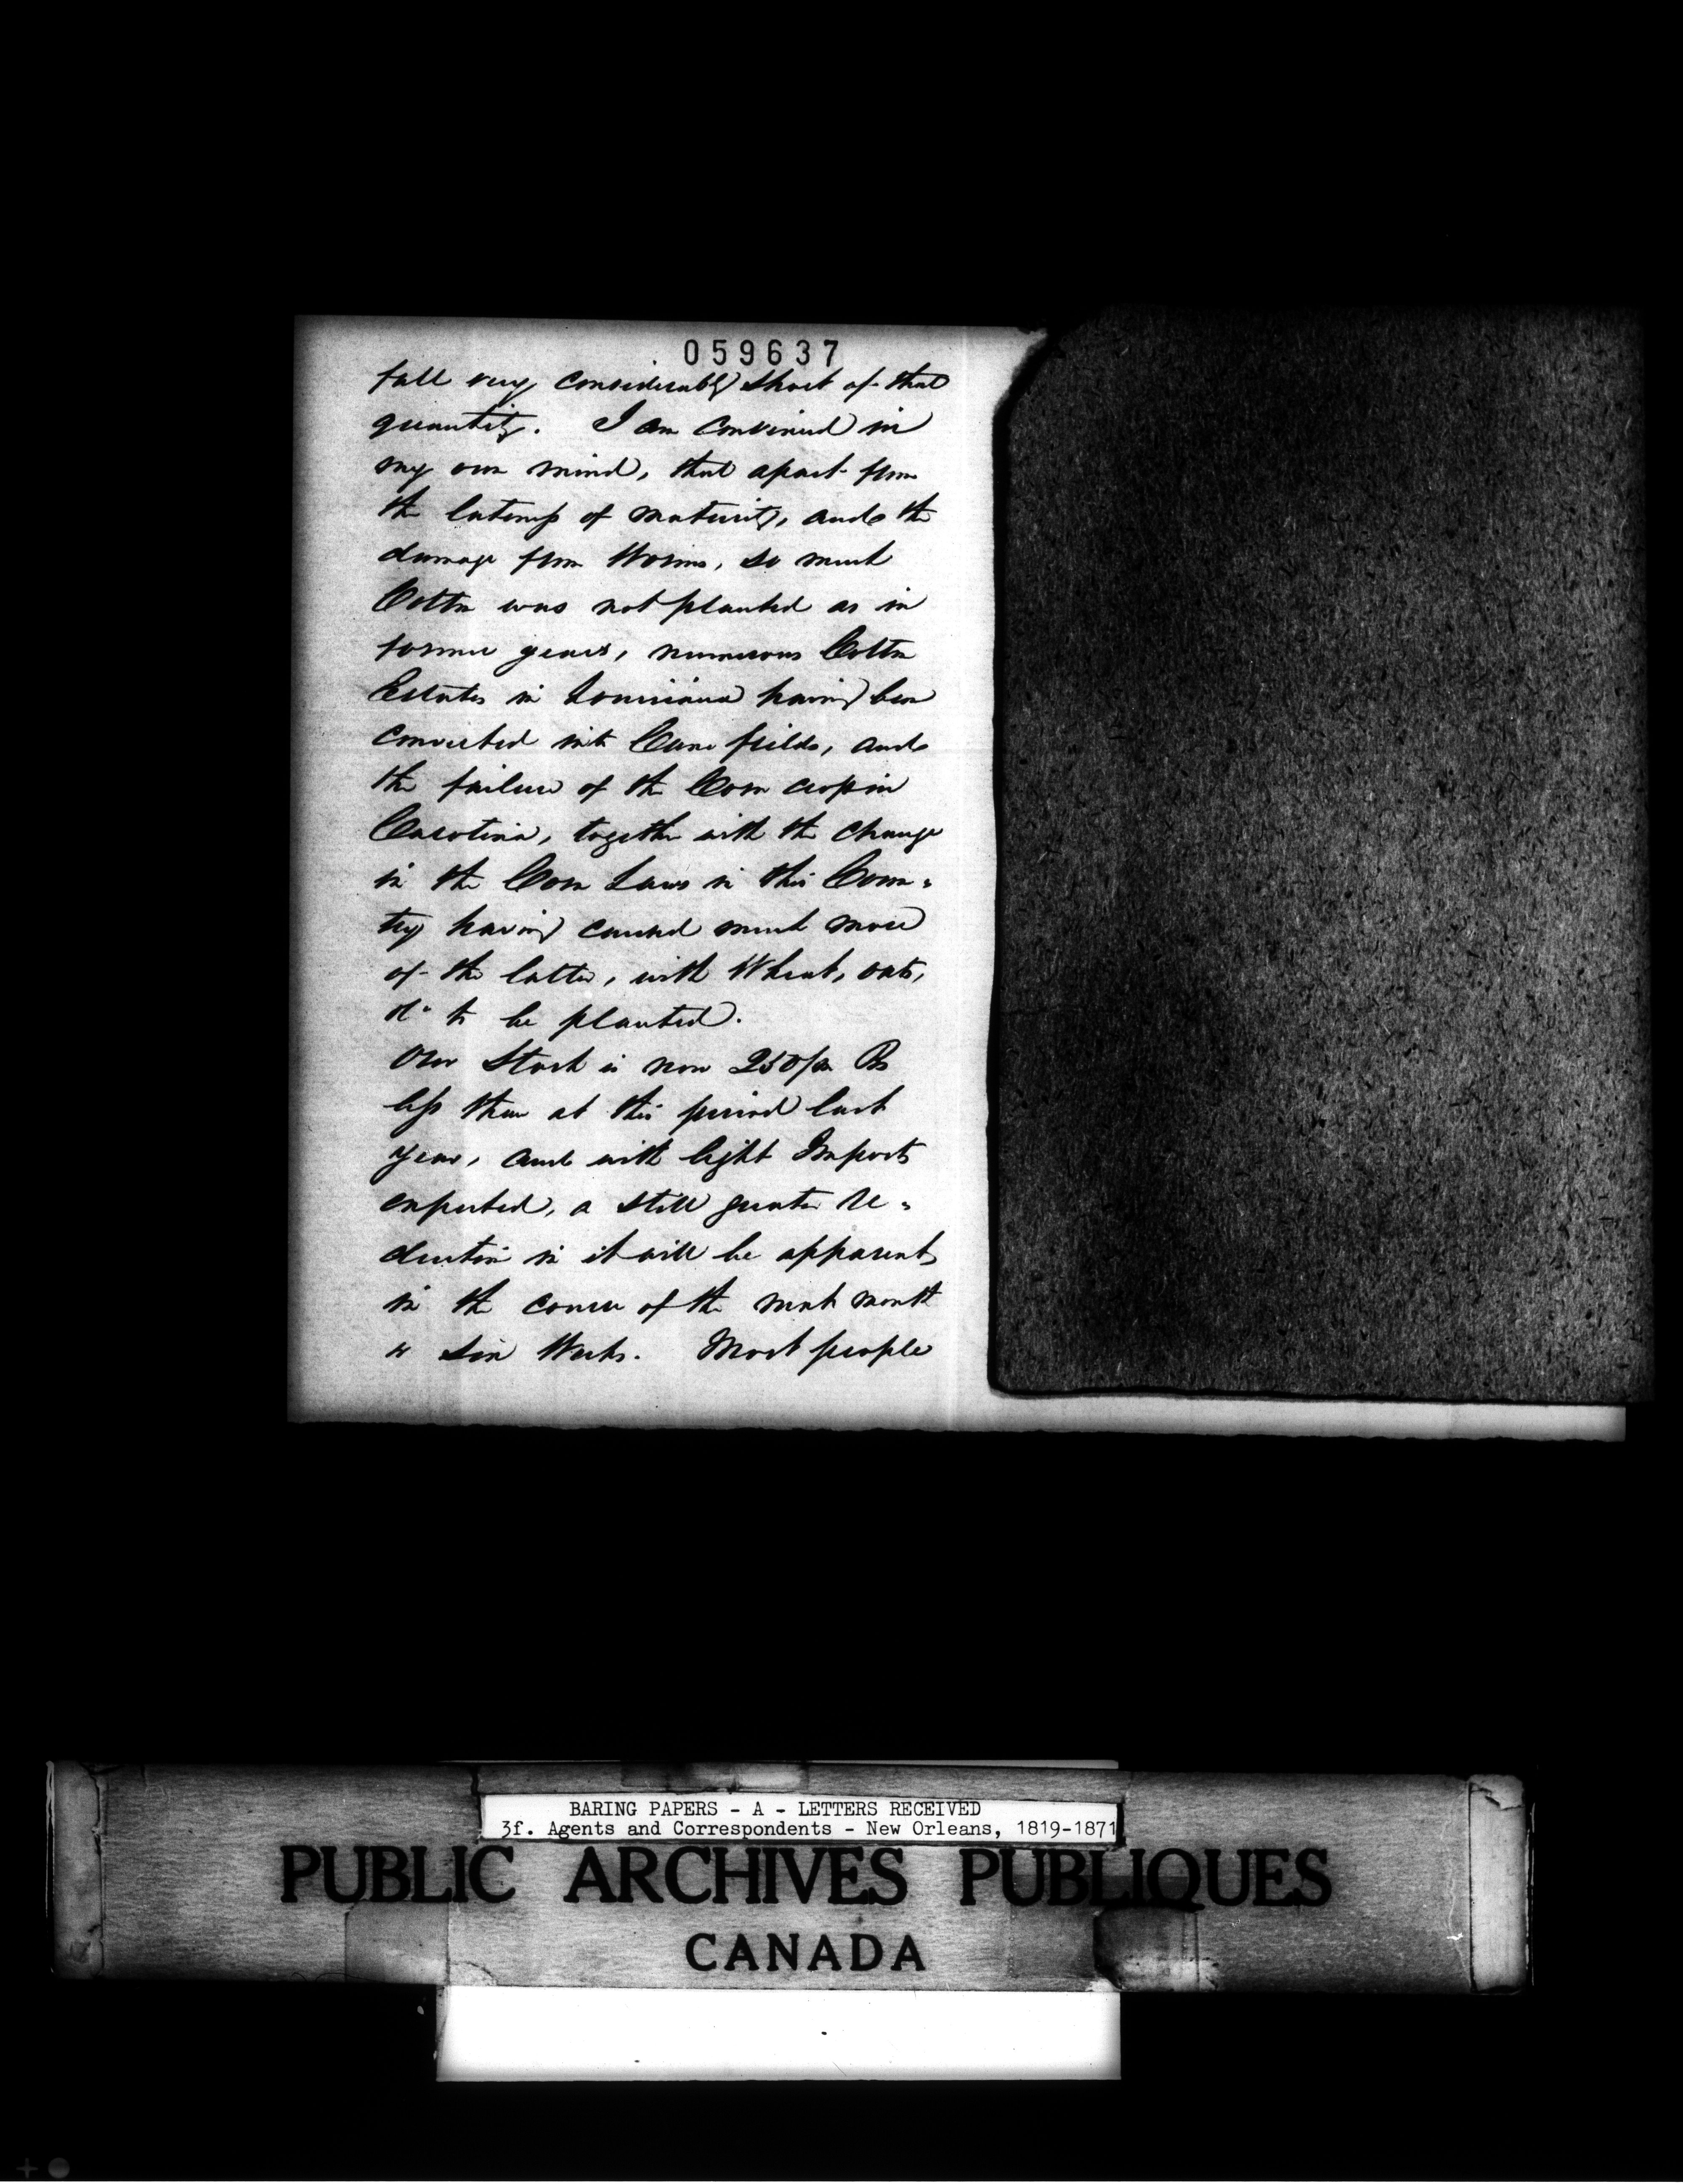 059637
fall very considerably short of that
quantity. I am convinced in
my own mind, that apart from
the lateness of maturity, and the
damage from Worms, so much
Cotton was not planted as in
former years, numerous Cotton
Estates in Louisiana having been
converted into Cane fields, and
the failure of the Corn crop in
Carolina, together with the change
in the Corn Laws in this Coun=
try having caused much more
of the latter, with Wheat, oats,
to be planted.
Our Stock is now 250/m Bs
less than at this period last
year, and with light Imports
expected, a still greater re=
duction in it will be apparent
in the course of the next month
or six Weeks. Most people
BARING PAPERS - A - LETTERS RECEIVED
3f. Agents and Correspondents - New Orleans, 1819-1871
PUBLIC ARCHIVES PUBLIQUES
CANADA